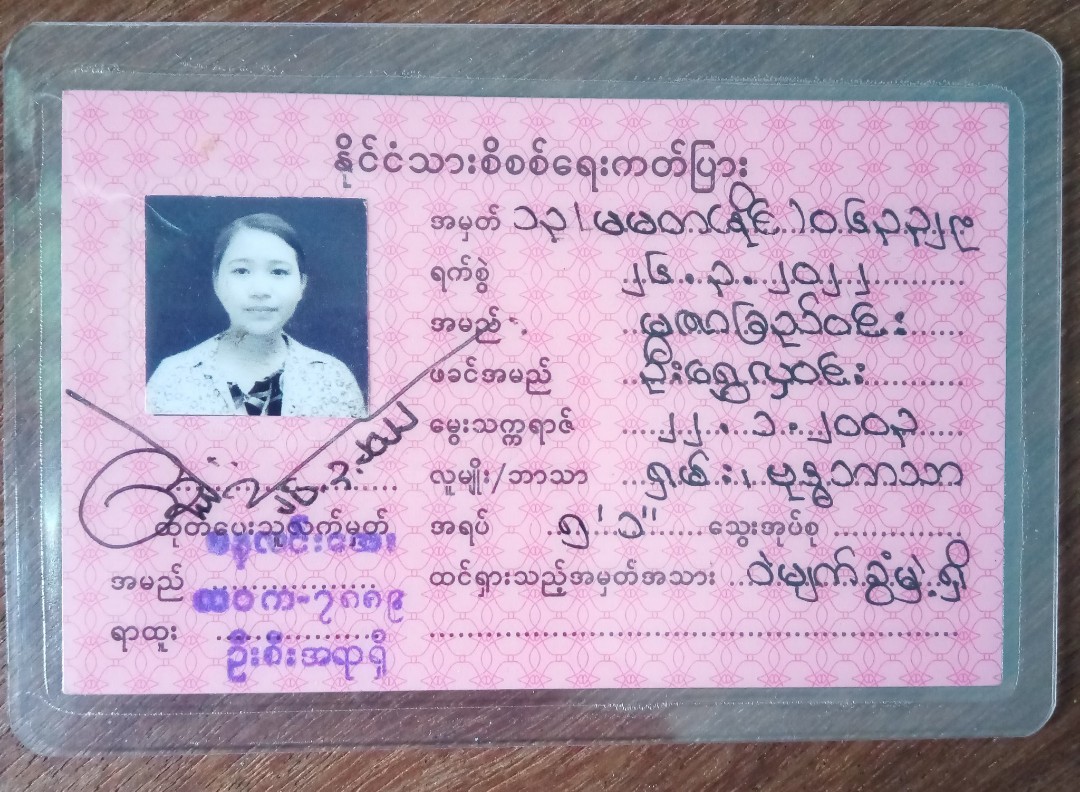 နိုင်ငံသားစိစစ်ရေးကတ်ပြား
အမှတ် ၁၃/မမတ(နိုင်)၀၆၃၃၂၉
ရက်စွဲ ၂၆.၃.၂၀၂၂
အမည် မွှဇာခြည်ဝင်း
ဖခင်အမည် ဦးရွှေလှဝင်း
မွေးသက္ကရာဇ် ၂၂.၁.၂၀၀၃
လူမျိုး/ဘာသာ ရှမ်း၊ ဗုဒ္ဓဘာသာ
အရပ် ၅'၁" သွေးအုပ်စု
ထင်ရှားသည့်အမှတ်အသား ဝဲမျက်ခွံမှဲ့ရှိ
၂၆.၃.၂၀၂၂
ထုတ်ပေးသူလက်မှတ်
အမည်
လဝက-၇၈၈၉
ရာထူး
ဦးစီးအရာရှိ